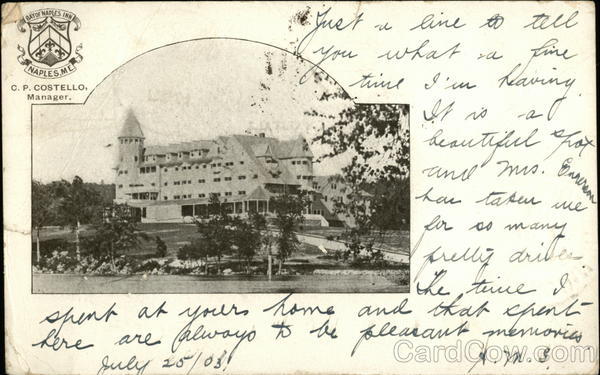 BAY OF NAPLES INN
NAPLES, ME.
C. P. COSTELLO,
Manager.
Just a line to tell
you what a fine
time I'm having.
It is a
beautiful spot
and Mrs. Emerson
has taken me
for so many
pretty drives
The time I
spent at yours home and that spent
here are always to be pleasant memories
July 25/03.
A.M.S.
CardCow.com